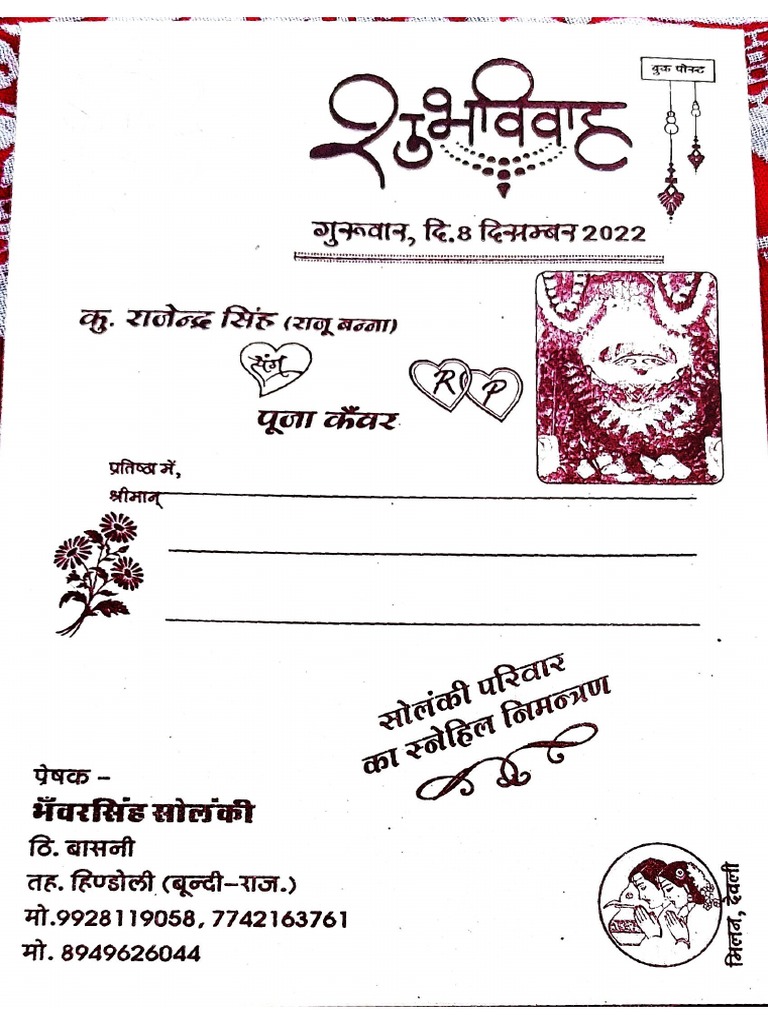 बुक पोस्ट
शुभविवाह
गुरूवार, दि.8 दिसम्बर 2022
कु. राजेन्द्र सिंह (राजू बन्ना)
संग
R P
पूजा कँवर
प्रतिष्ठा में,
श्रीमान्
सोलंकी परिवार
का स्नेहिल निमन्त्रण
प्रेषक –
भँवरसिंह सोलंकी
ठि. बासनी
तह. हिण्डोली (बून्दी-राज.)
मो.9928119058, 7742163761
मो. 8949626044
मिलन, देवली